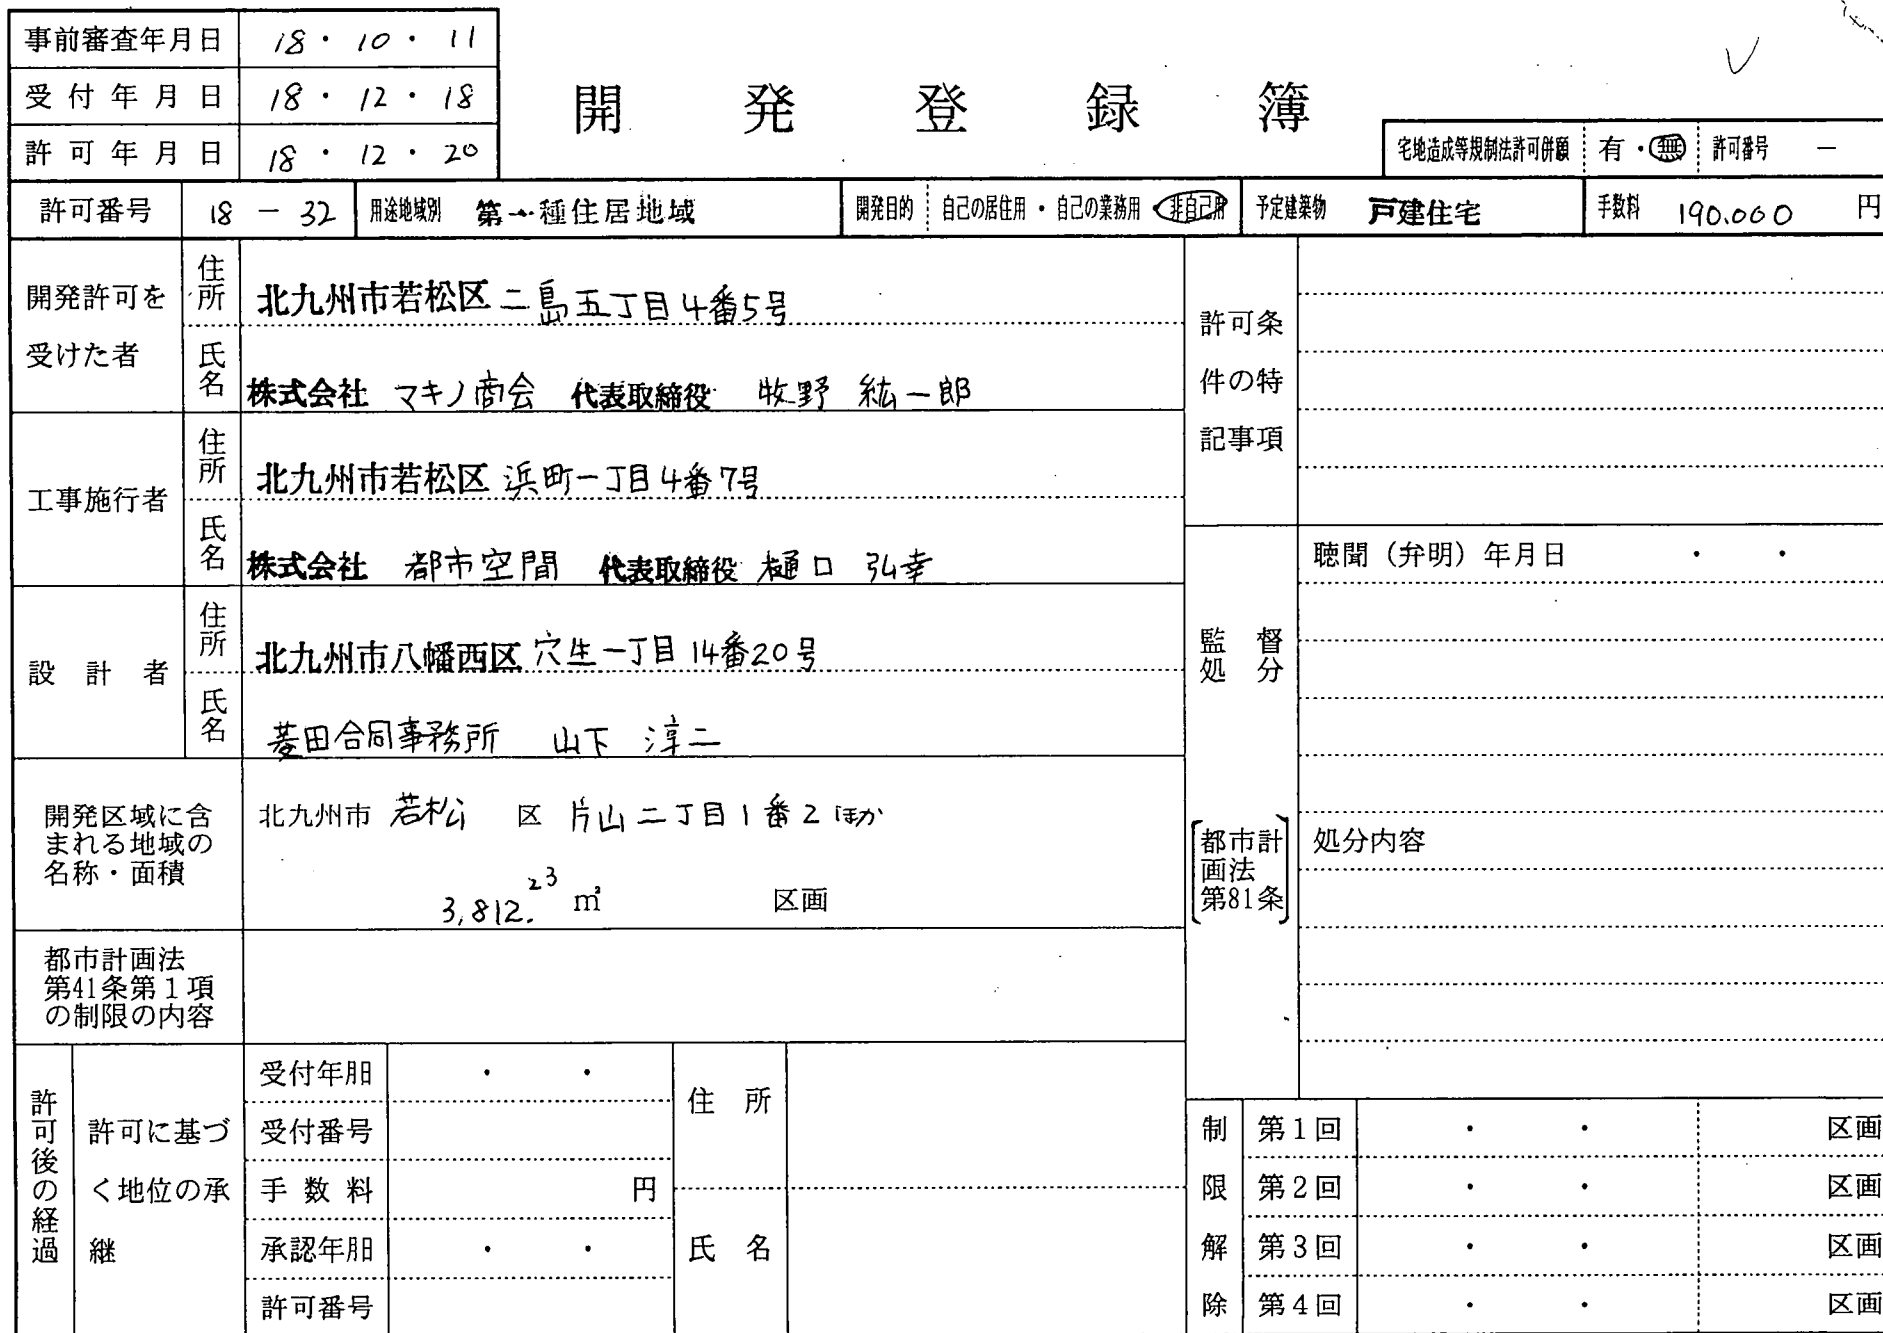 事前審査年月日 18・10・11
受付年月日 18・12・18
許可年月日 18・12・20
開発登録簿
宅地造成等規制法許可併願 有・無 許可番号 －
許可番号 18－32 用途地域別 第一種住居地域 開発目的 自己の居住用・自己の業務用・非自己用 予定建築物 戸建住宅 手数料 190,000 円
開発許可を受けた者
住所 北九州市若松区二島五丁目4番5号
氏名 株式会社 マキノ商会 代表取締役 牧野 紘一郎
工事施行者
住所 北九州市若松区浜町一丁目4番7号
氏名 株式会社 都市空間 代表取締役 樋口 弘幸
設計者
住所 北九州市八幡西区穴生一丁目14番20号
氏名 菱田合同事務所 山下 淳二
開発区域に含
まれる地域の
名称・面積
北九州市 若松 区 片山二丁目1番2ほか
3,812.23 ㎡ 区画
都市計画法
第41条第1項
の制限の内容
許可後の経過
許可に基づ
く地位の承
継
受付年月日 ・ ・
受付番号
手数料 円
承認年月日 ・ ・
許可番号
住所
氏名
許可条
件の特
記事項
監督
処分
都市計
画法
第81条
聴聞（弁明）年月日 ・ ・
処分内容
制限解除
第1回 ・ ・ 区画
第2回 ・ ・ 区画
第3回 ・ ・ 区画
第4回 ・ ・ 区画